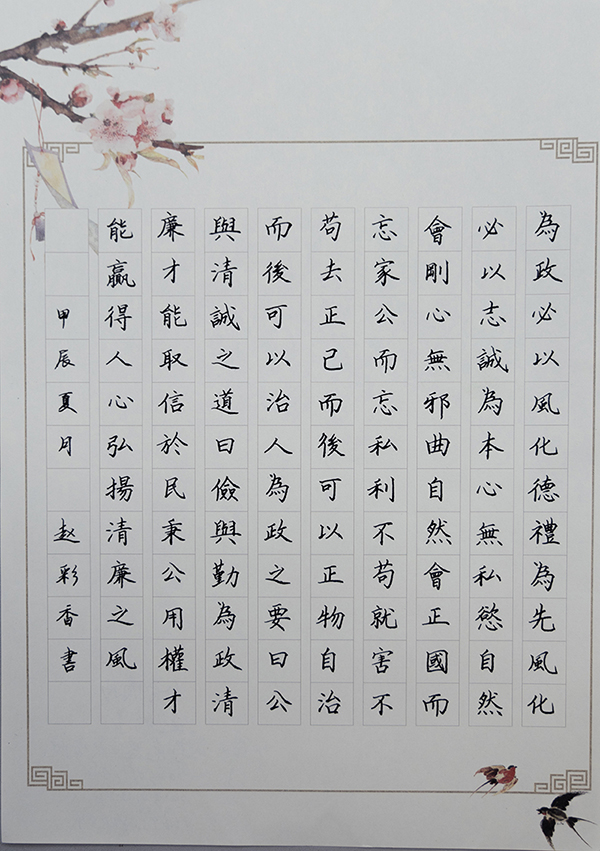 為政必以風化德禮為先風化
必以志誠為本心無私慾自然
會剛心無邪曲自然會正國而
忘家公而忘私利不苟就害不
苟去正已而後可以正物自治
而後可以治人為政之要曰公
與清誠之道曰儉與勤為政清
廉才能取信於民秉公用權才
能贏得人心弘揚清廉之風
甲辰夏月 赵彩香書